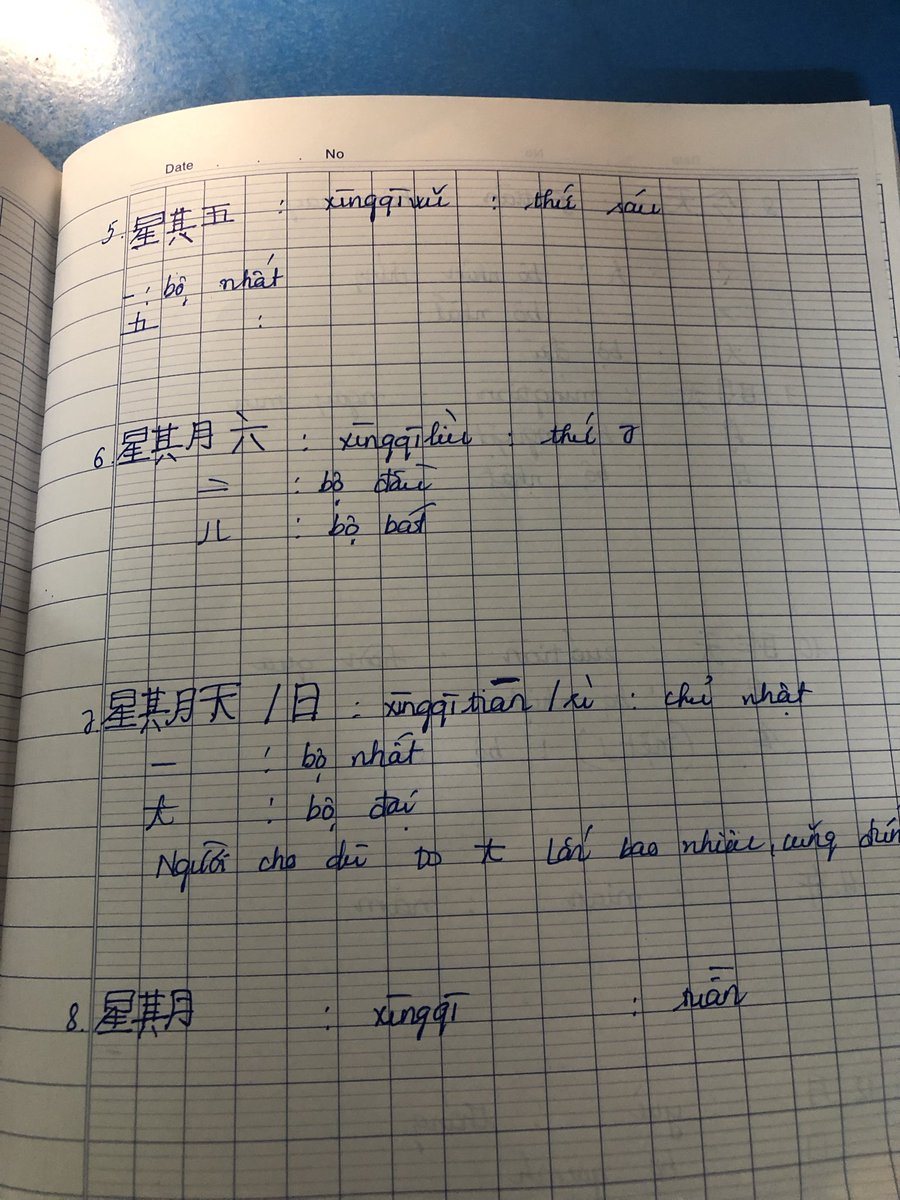 Date . . . No
5. 星其五 : xīngqīwǔ : thứ sáu
一 : bộ nhất
五 :
6. 星其月六 : xīngqīliù : thứ 7
亠 : bộ đầu
八 : bộ bát
7. 星其月天 / 日 : xīngqītiān / rì : chủ nhật
一 : bộ nhất
大 : bộ đại
Người cho dù to 大 lớn bao nhiêu, cũng
8. 星其月 : xīngqī : tuần